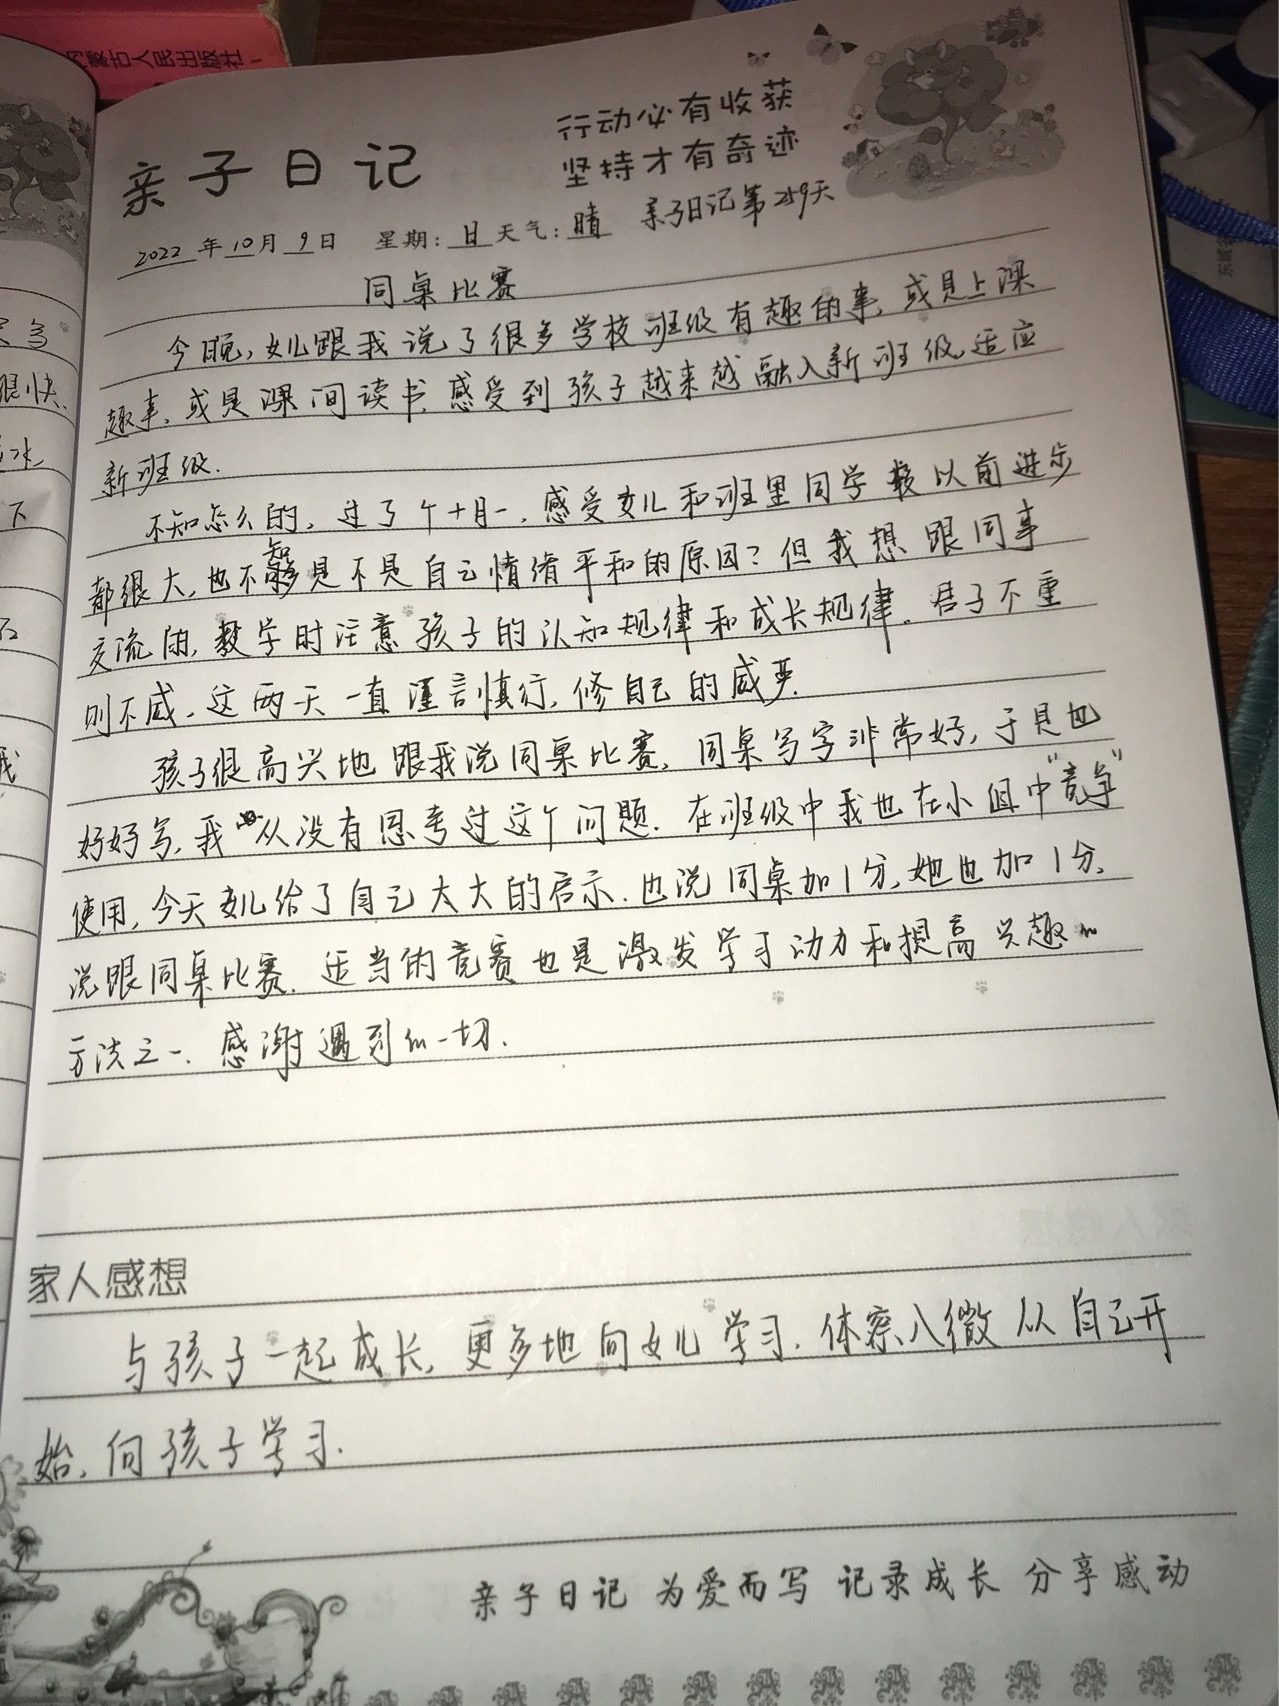 内蒙古人民出版社
行动必有收获
坚持才有奇迹
亲子日记
亲子日记第259天
2022年10月9日 星期:日 天气:晴
同桌比赛
今晚,女儿跟我说了很多学校班级有趣的事,或是上课
趣事,或是课间读书,感受到孩子越来越融入新班级,适应
新班级.
不知怎么的,过了个十月一,感受女儿和班里同学较以前进步
都很大,也不知是不是自己情绪平和的原因?但我想跟同事
交流的,教学时注意孩子的认知规律和成长规律.君子不重
则不威,这两天一直谨言慎行,修自己的威严.
孩子很高兴地跟我说同桌比赛,同桌写字非常好,于是也
好好写,我从没有思考过这个问题.在班级中我也在小组中"竞争"
使用,今天女儿给了自己大大的启示.也说同桌加1分,她也加1分,
说跟同桌比赛.适当的竞赛也是激发学习动力和提高兴趣的
方法之一.感谢遇到的一切.
家人感想
与孩子一起成长,更多地向女儿学习.体察入微从自己开
始,向孩子学习.
亲子日记 为爱而写 记录成长 分享感动